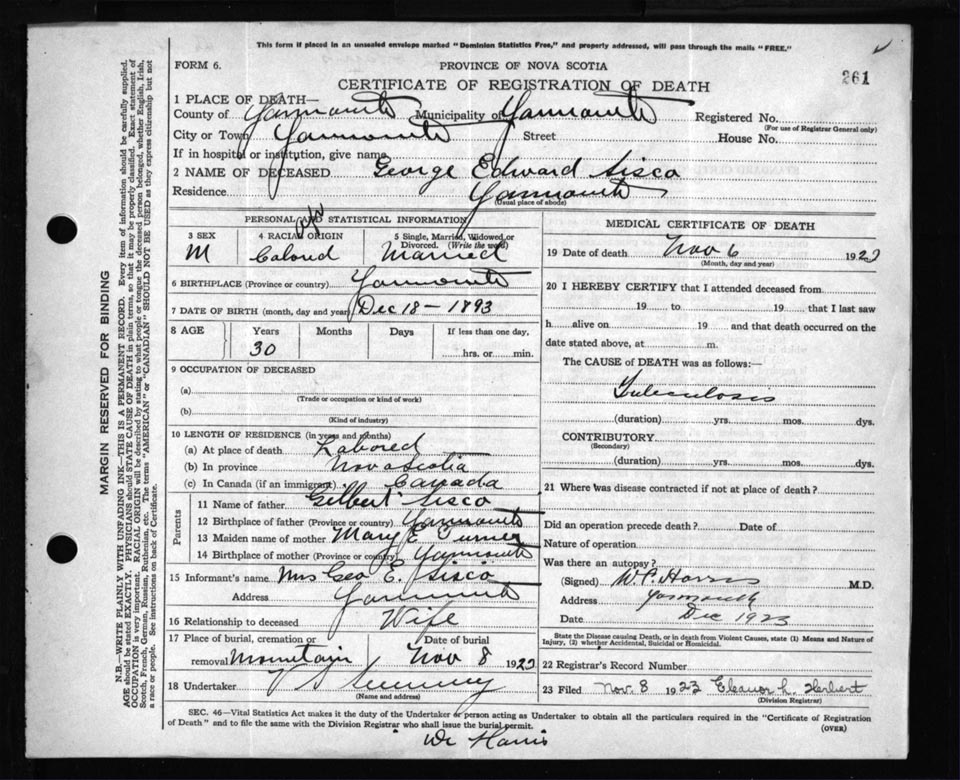 This form if placed in an unsealed envelope marked "Dominion Statistics Free," and properly addressed, will pass through the mails "FREE."
FORM 6.
PROVINCE OF NOVA SCOTIA
261
CERTIFICATE OF REGISTRATION OF DEATH
1 PLACE OF DEATH—
County of Yarmouth Municipality of Yarmouth Registered No.
(For use of Registrar General only)
City or Town Yarmouth Street House No.
If in hospital or institution, give name
2 NAME OF DECEASED George Edward Sisco
Residence Yarmouth
(Usual place of abode)
PERSONAL STATISTICAL INFORMATION
3 SEX
M
4 RACIAL ORIGIN
Colored
5 Single, Married, Widowed or Divorced. (Write the word)
Married
6 BIRTHPLACE (Province or country) Yarmouth
7 DATE OF BIRTH (month, day and year) Dec 18 – 1893
8 AGE Years Months Days If less than one day,
30 hrs. or min.
9 OCCUPATION OF DECEASED
(a)
(Trade or occupation or kind of work)
(b)
(Kind of industry)
10 LENGTH OF RESIDENCE (in years and months)
(a) At place of death Labored
(b) In province Nova Scotia
(c) In Canada (if an immigrant) Canada
Parents
11 Name of father Gilbert Sisco
12 Birthplace of father (Province or country) Yarmouth
13 Maiden name of mother Mary E Turner
14 Birthplace of mother (Province or country) Yarmouth
15 Informant's name Mrs Geo E. Sisco
Address Yarmouth
16 Relationship to deceased Wife
17 Place of burial, cremation or removal Mountain
Date of burial
Nov 8 1923
18 Undertaker
(Name and address)
MEDICAL CERTIFICATE OF DEATH
19 Date of death Nov 6 1923
(Month, day and year)
20 I HEREBY CERTIFY that I attended deceased from
19 to 19 that I last saw
h alive on 19 and that death occurred on the
date stated above, at m.
The CAUSE of DEATH was as follows:—
Tuberculosis
(duration) yrs. mos. dys.
CONTRIBUTORY
(Secondary)
(duration) yrs. mos. dys.
21 Where was disease contracted if not at place of death?
Did an operation precede death? Date of
Nature of operation
Was there an autopsy?
(Signed) W.C. Harris M.D.
Address Yarmouth
Date Dec 1923
State the Disease causing Death, or in death from Violent Causes, state (1) Means and Nature of
Injury, (2) whether Accidental, Suicidal or Homicidal.
22 Registrar's Record Number
23 Filed Nov. 8 1923 Eleanor L. Herbert
(Division Registrar)
SEC. 46—Vital Statistics Act makes it the duty of the Undertaker or person acting as Undertaker to obtain all the particulars required in the "Certificate of Registration
of Death" and to file the same with the Division Registrar who shall issue the burial permit.
(OVER)
Harris
MARGIN RESERVED FOR BINDING
N.B.—WRITE PLAINLY WITH UNFADING INK—THIS IS A PERMANENT RECORD. Every item of information should be carefully supplied.
AGE should be stated EXACTLY. PHYSICIANS should STATE CAUSE OF DEATH in plain terms, so that it may be properly classified. Exact statement of
OCCUPATION is very important. RACIAL ORIGIN will be described by stating to what people or tongue the deceased person belonged, whether English, Irish,
Scotch, French, German, Russian, Ruthenian, etc. The terms "AMERICAN" or "CANADIAN" SHOULD NOT BE USED as they express citizenship but not
a race or people. See instructions on back of Certificate.